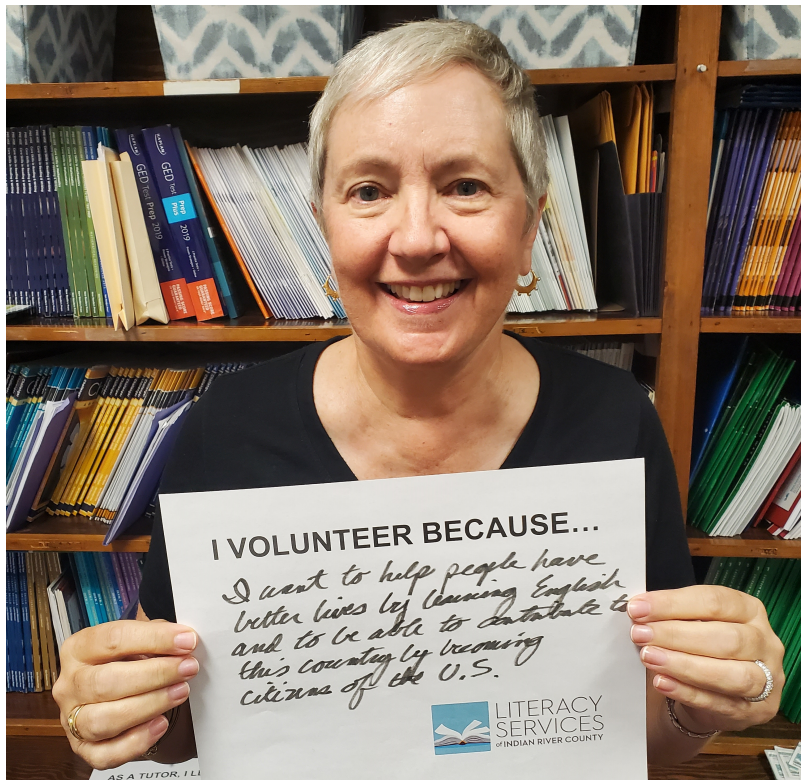 KAPLAN
GED Test Prep 2019
KAPLAN
GED Test Prep 2019
Prep Plus
I VOLUNTEER BECAUSE...
I want to help people have
better lives by learning English
and to be able to contribute to
this country by becoming
citizens of the U.S.
LITERACY
SERVICES
of INDIAN RIVER COUNTY
AS A TUTOR, I